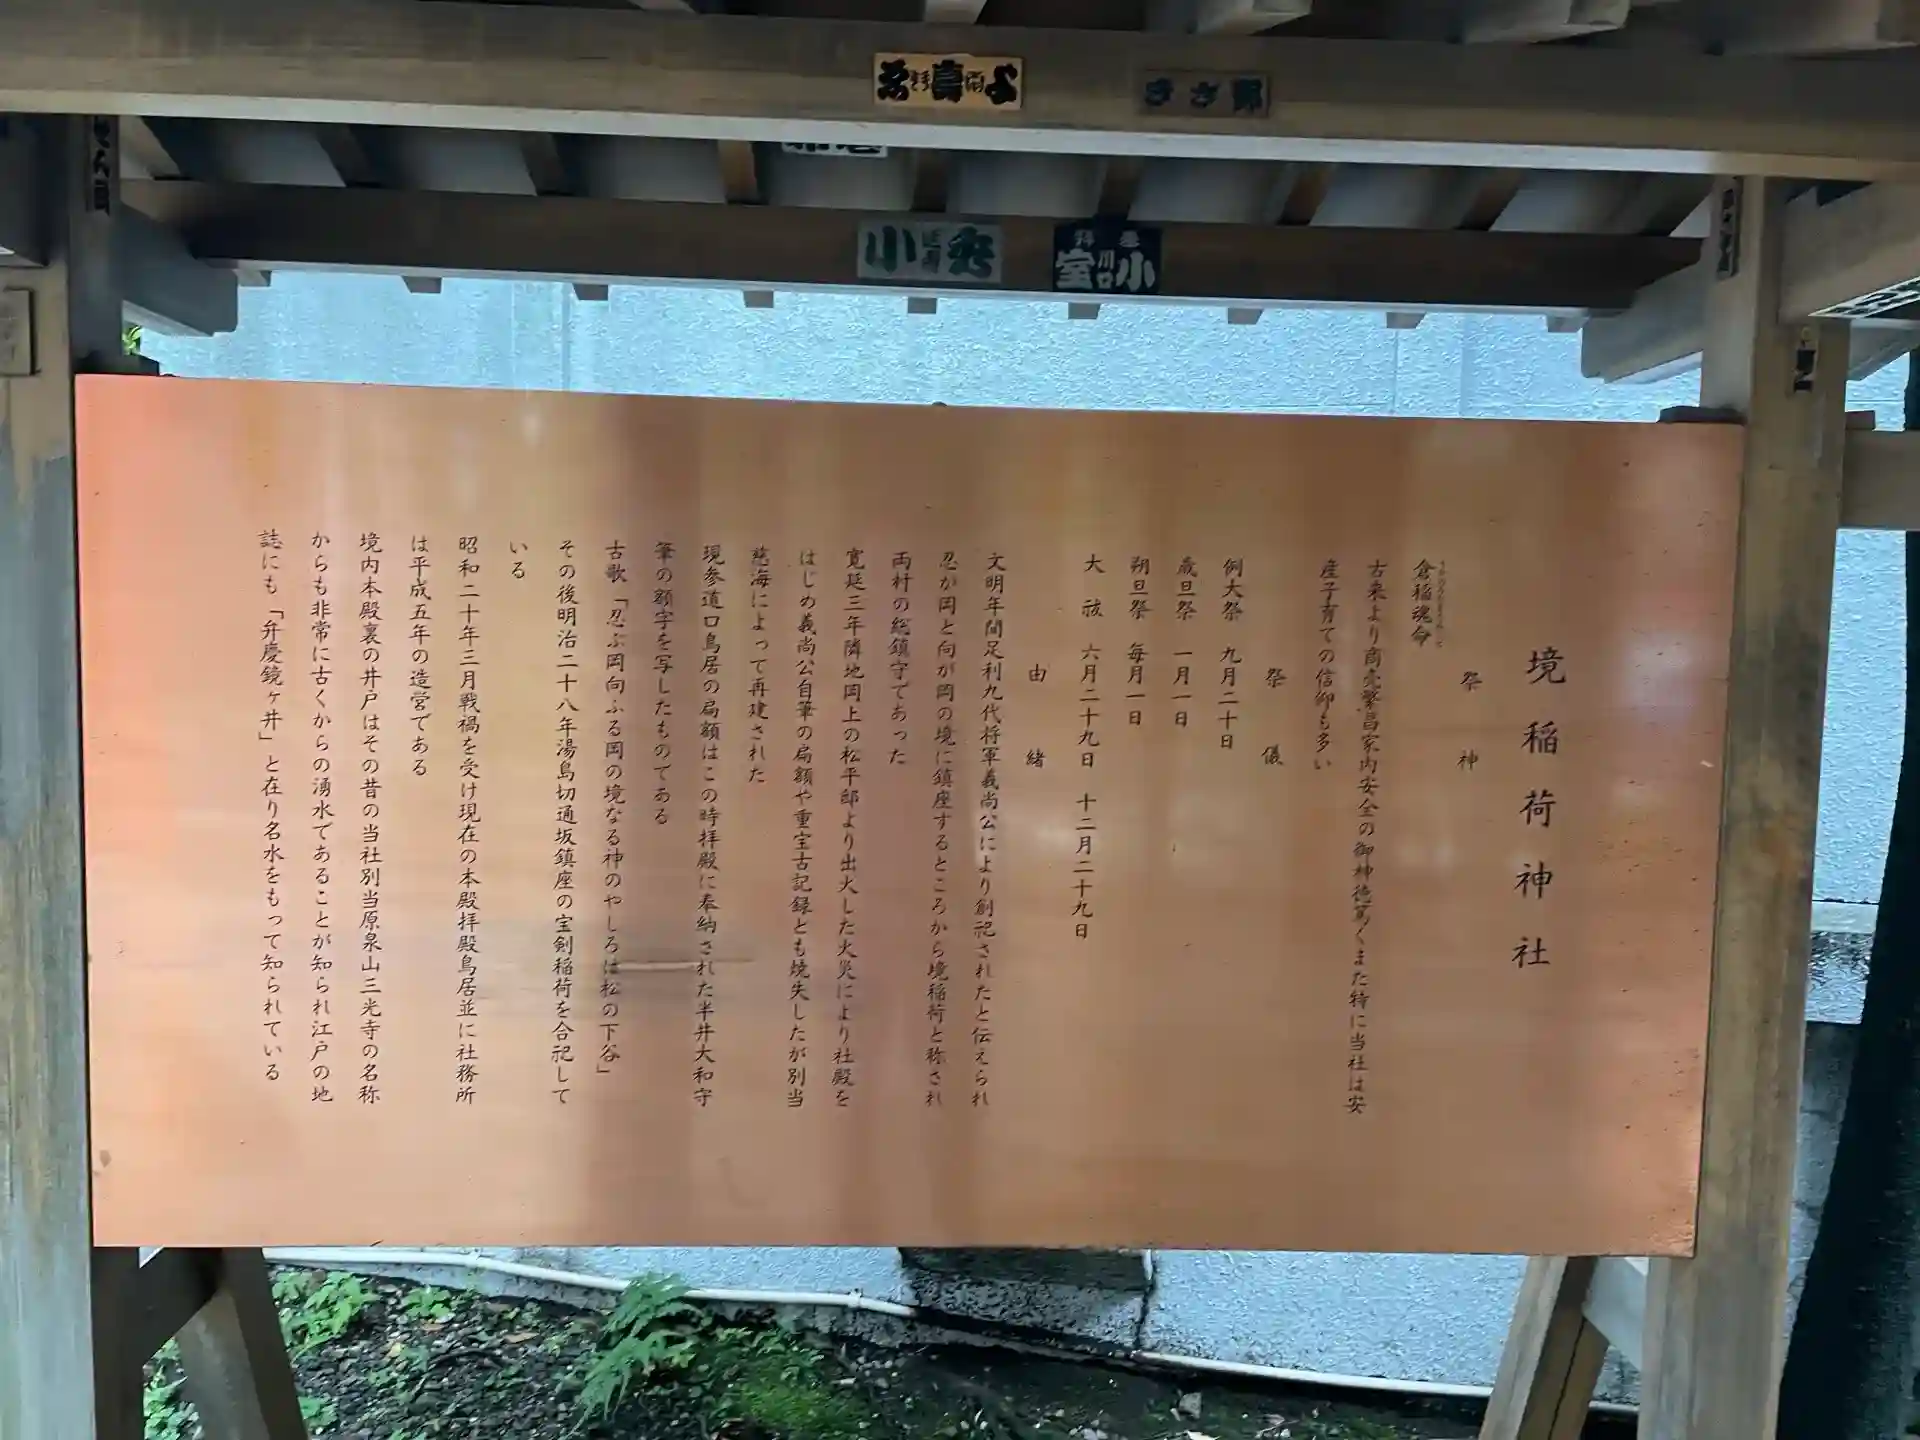 境稲荷神社
祭神
倉稲魂命
古来より商売繁昌家内安全の御神徳篤くまた特に当社は安
産子育ての信仰も多い
祭儀
例大祭 九月二十日
歳旦祭 一月一日
朔旦祭 毎月一日
大祓 六月二十九日 十二月二十九日
由緒
文明年間足利九代将軍義尚公により創祀されたと伝えられ
忍が岡と向が岡の境に鎮座するところから境稲荷と称され
両村の総鎮守であった
寛延三年隣地岡上の松平邸より出火した火災により社殿を
はじめ義尚公自筆の扁額や重宝古記録とも焼失したが別当
慈海によって再建された
現参道口鳥居の扁額はこの時拝殿に奉納された半井大和守
筆の額字を写したものである
古歌「忍ぶ岡向ふる岡の境なる神のやしろは松の下谷」
その後明治二十八年湯島切通坂鎮座の宝剣稲荷を合祀して
いる
昭和二十年三月戦禍を受け現在の本殿拝殿鳥居並に社務所
は平成五年の造営である
境内本殿裏の井戸はその昔の当社別当原泉山三光寺の名称
からも非常に古くからの湧水であることが知られ江戸の地
誌にも「弁慶鏡ヶ井」と在り名水をもって知られている